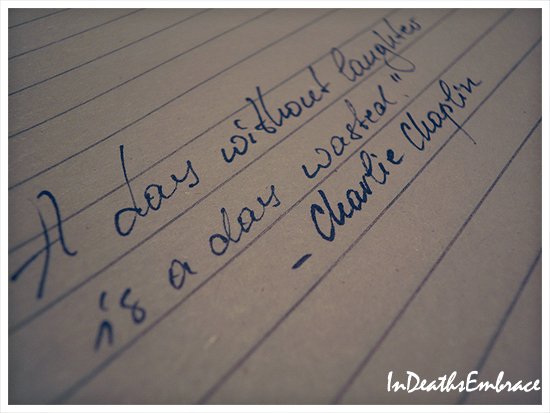 A day without laughter
is a day wasted."
- Charlie Chaplin
InDeathsEmbrace